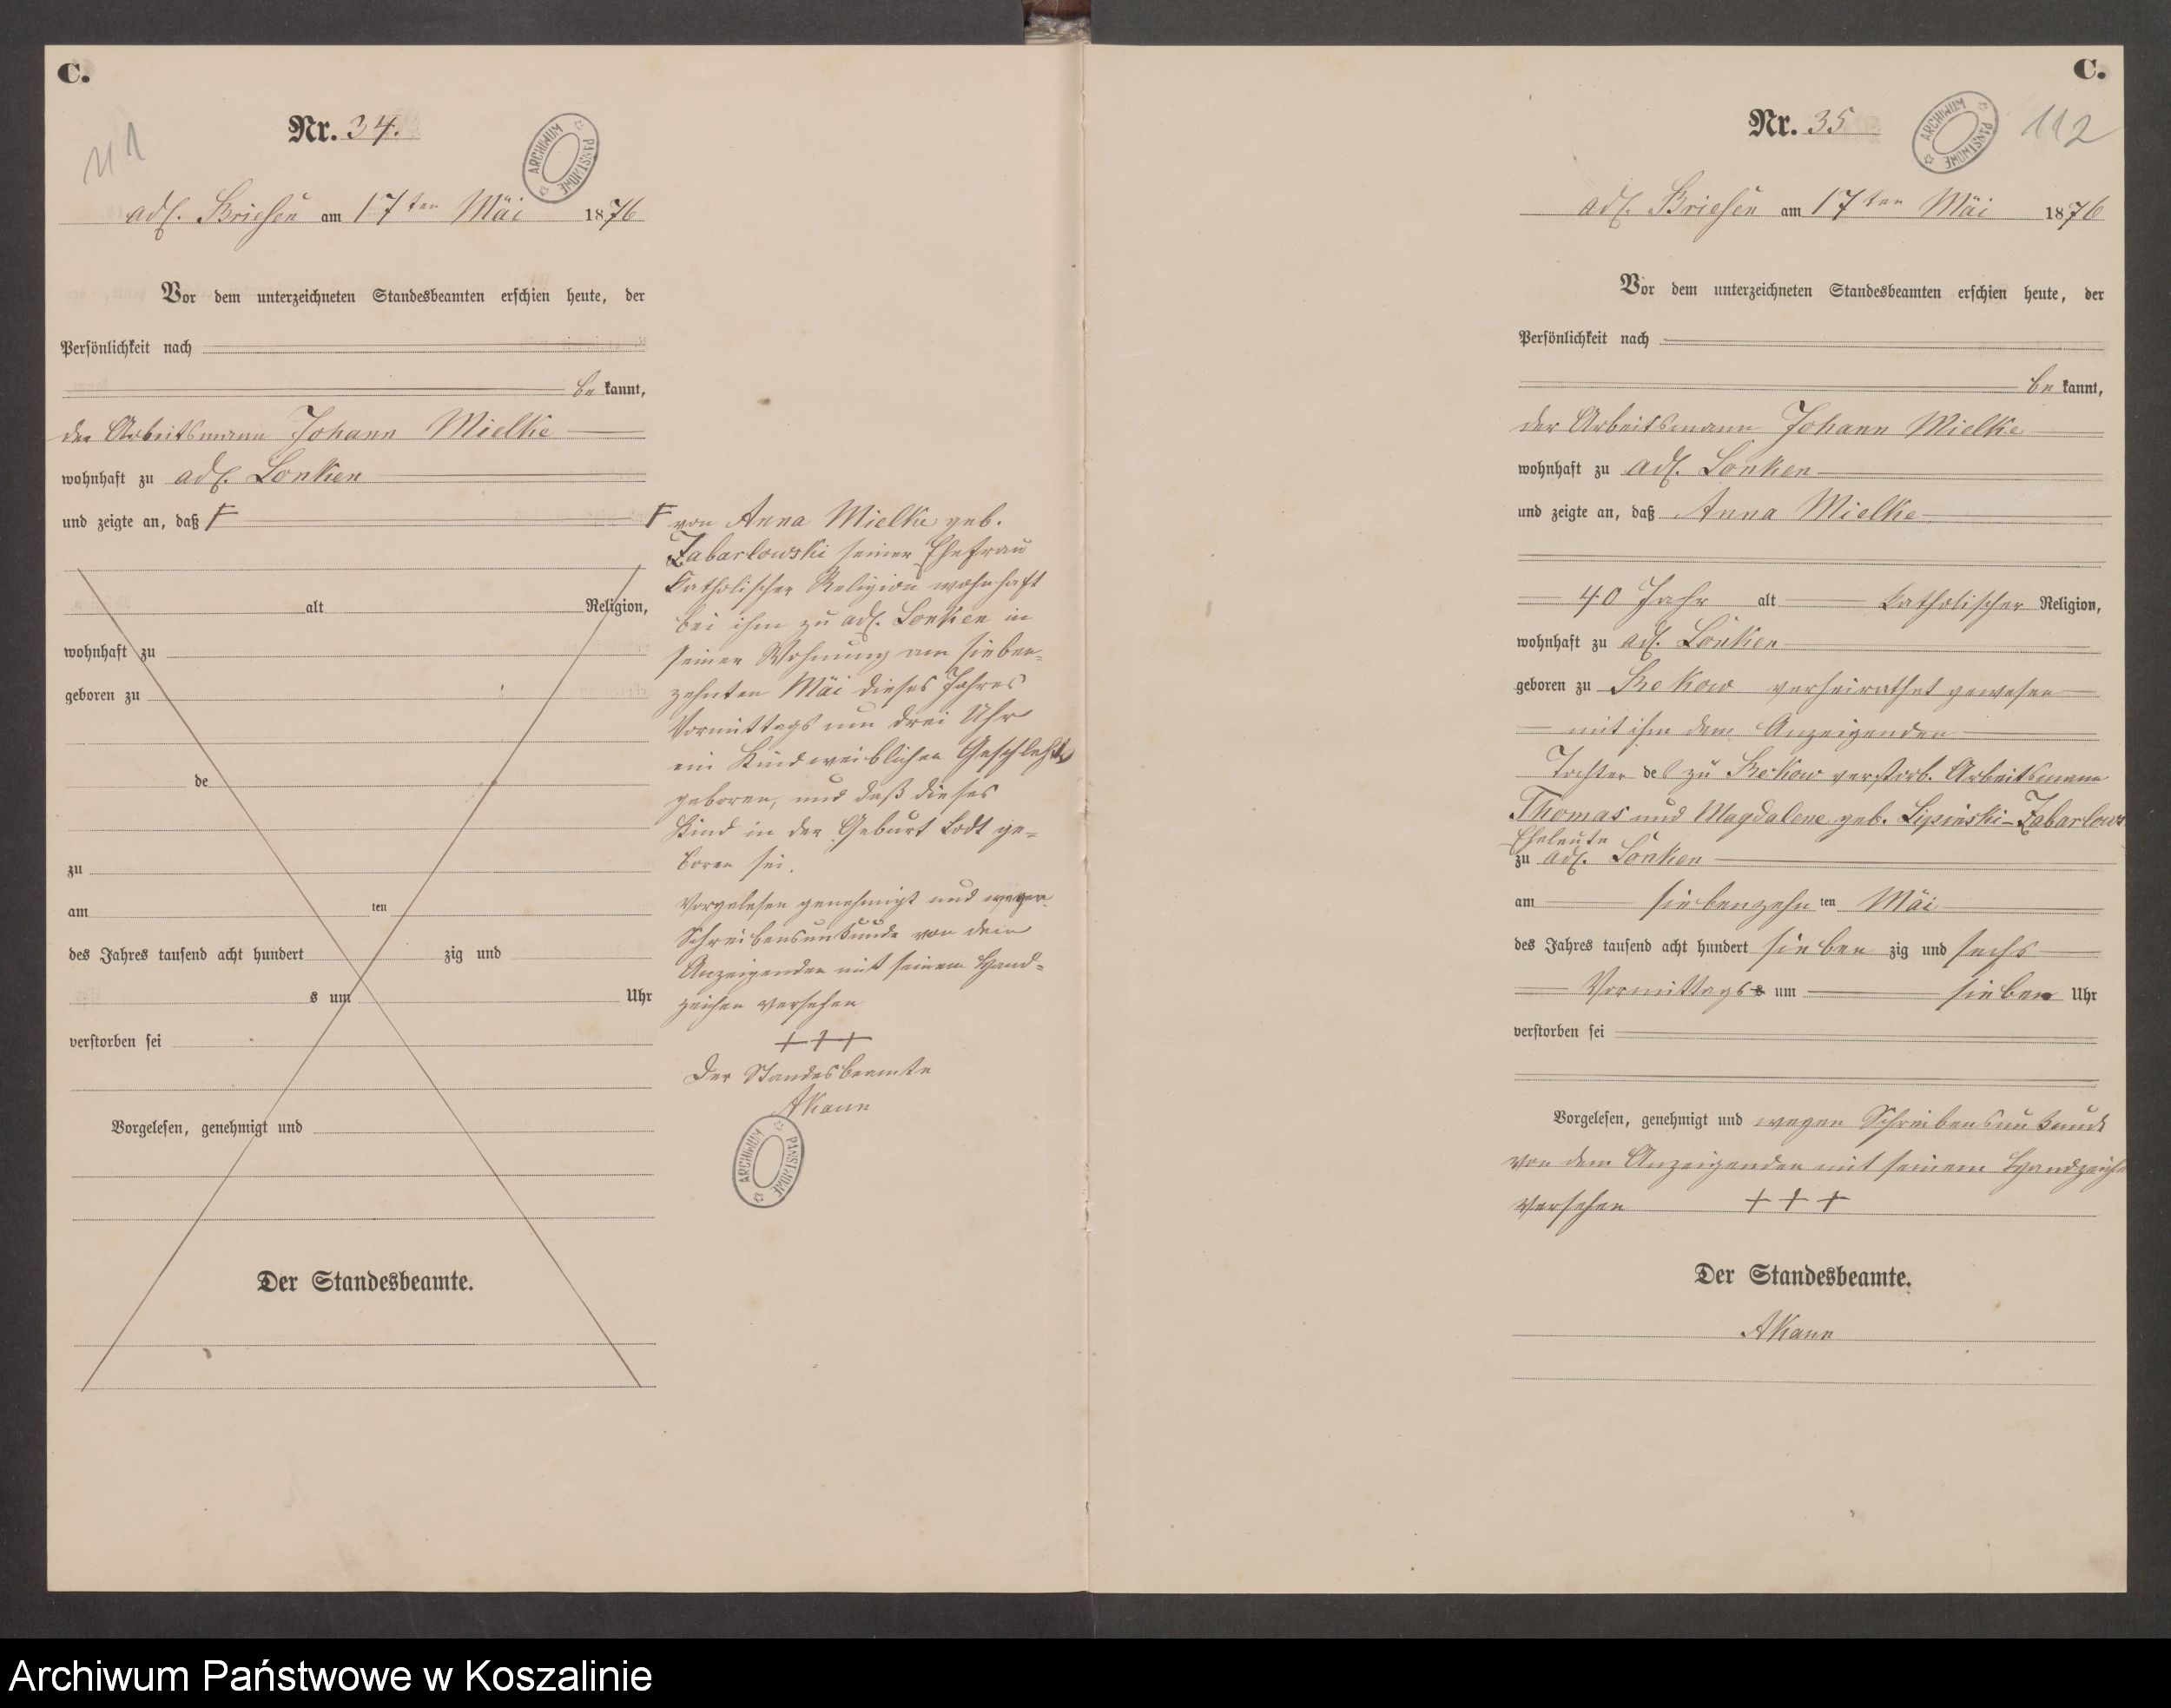 C.
111
Nr. 34.
ARCHIWUM PAŃSTWOWE
adl. Briesen am 17ten Mai 1876
Vor dem unterzeichneten Standesbeamten erschien heute, der
Persönlichkeit nach
bekannt,
der Arbeitsmann Johann Mielke
wohnhaft zu adl. Lonken
und zeigte an, daß F
alt Religion,
wohnhaft zu
geboren zu
de
zu
am ten
des Jahres tausend acht hundert zig und
s um Uhr
verstorben sei
Vorgelesen, genehmigt und
Der Standesbeamte.
F von Anna Mielke geb.
Zabarlowski seiner Ehefrau
Katholischer Religion wohnhaft
bei ihm zu adl. Lonken in
seiner Wohnung am sieben-
zehnten Mai dieses Jahres
Vormittags um drei Uhr
ein Kind weiblichen Geschlechts
geboren, und daß dieses
Kind in der Geburt todt ge-
boren sei.
Vorgelesen genehmigt und wegen
Schreibensunkunde von dem
Anzeigenden mit seinem Hand-
zeichen versehen
+++
Der Standesbeamte
AKann
ARCHIWUM PAŃSTWOWE
C.
Nr. 35
ARCHIWUM PAŃSTWOWE
112
adl. Briesen am 17ten Mai 1876
Vor dem unterzeichneten Standesbeamten erschien heute, der
Persönlichkeit nach
bekannt,
der Arbeitsmann Johann Mielke
wohnhaft zu adl. Lonken
und zeigte an, daß Anna Mielke
40 Jahr alt katholischer Religion,
wohnhaft zu adl. Lonken
geboren zu Rekow verheirathet gewesen
mit ihm dem Anzeigenden
Tochter des zu Rekow verstorb. Arbeitsmann
Thomas und Magdalene geb. Lipinski-Zabarlows
Eheleute
zu adl. Lonken
am siebenzehnten Mai
des Jahres tausend acht hundert siebenzig und sechs
Vormittags um sieben Uhr
verstorben sei
Vorgelesen, genehmigt und wegen Schreibensunkunde
von dem Anzeigenden mit seinem Handzeichen
versehen + + +
Der Standesbeamte.
AKann
Archiwum Państwowe w Koszalinie